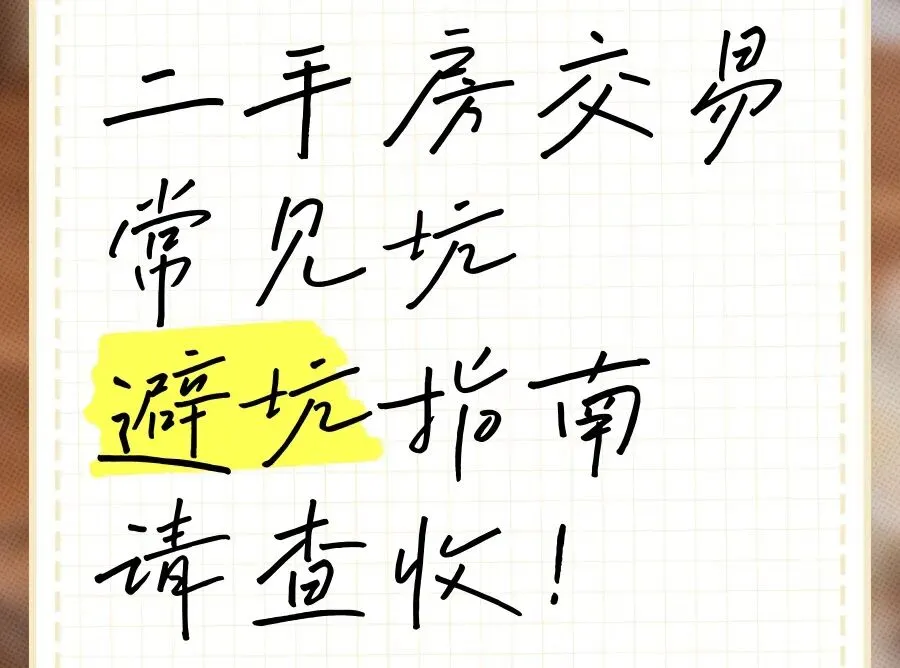 二手房交易
常见坑
避坑指南
请查收！